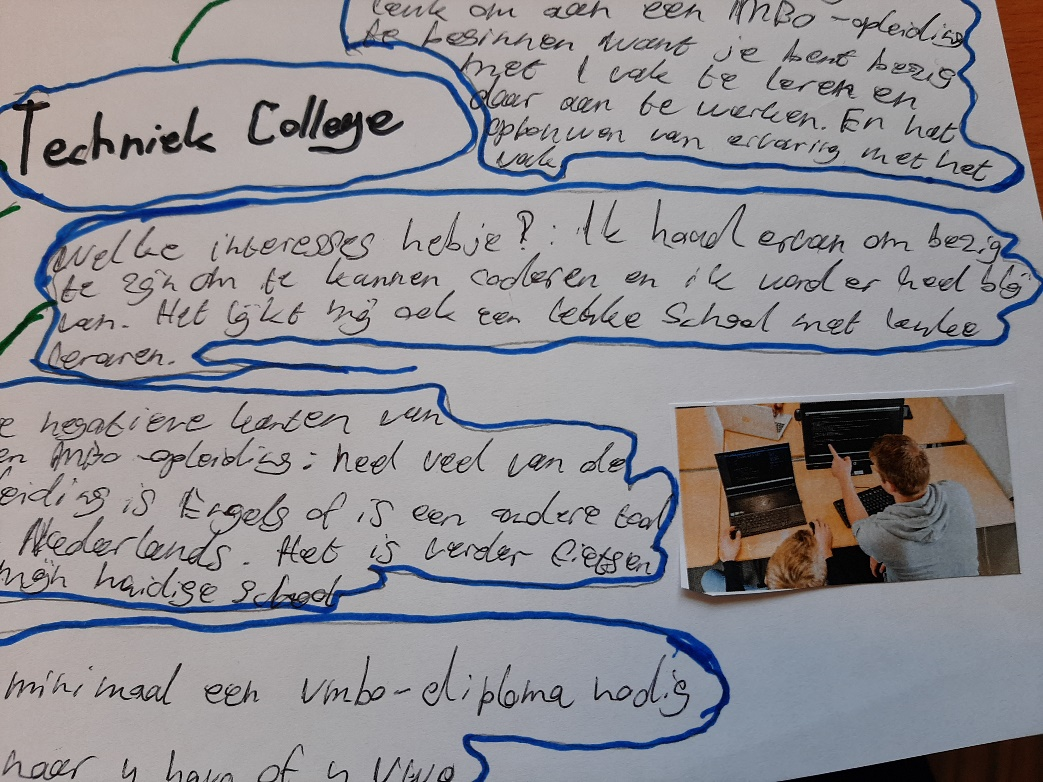 leuk om aan een MBO-opleiding
te beginnen want je bent bezig
met 1 vak te leren en
daar aan te werken. En het
opbouwen van ervaring met het
vak.
Techniek College
Welke interesses heb je? : Ik houd ervan om bezig
te zijn om te kunnen coderen en ik word er heel blij
van. Het lijkt mij ook een leuke School met leuke
leraren.
e negatieve kanten van
en MBO-opleiding: heel veel van de
eiding is Engels of is een andere taal
Nederlands. Het is verder fietsen
mijn huidige school
minimaal een vmbo-diploma nodig
naar